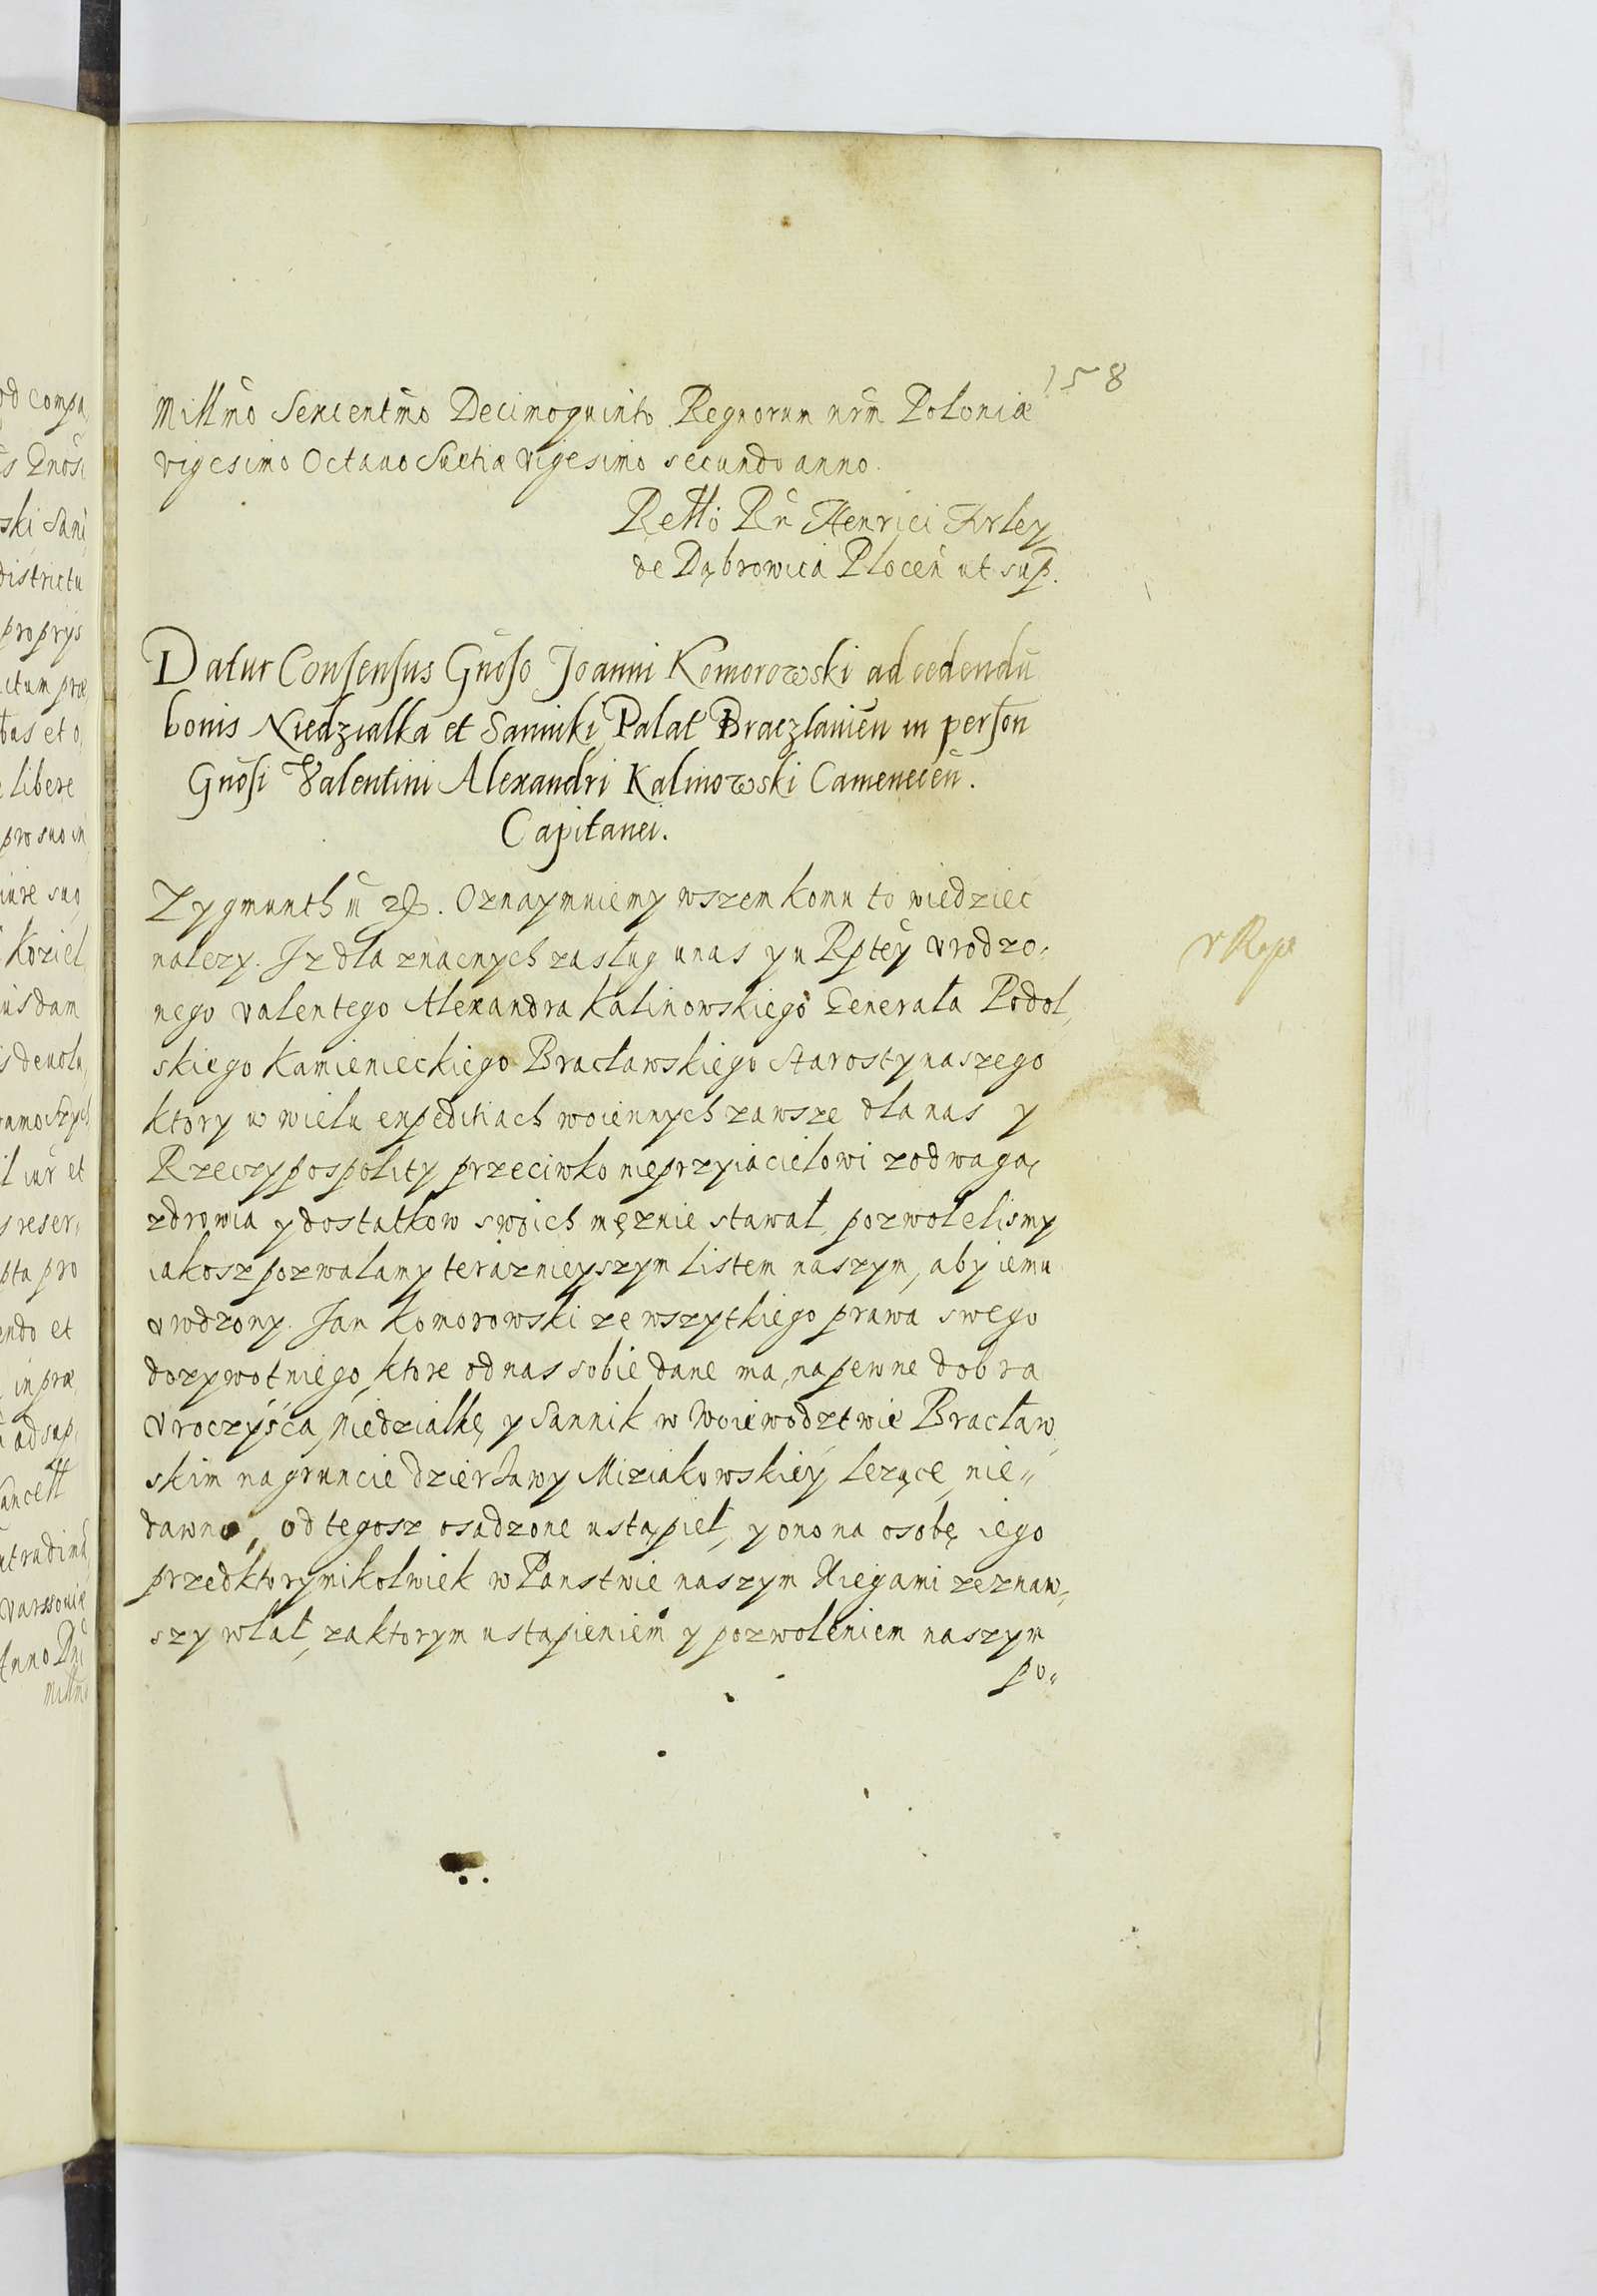 158
Millmo Sexcentmo Decimoquinto Regnorum nrm Poloniæ
vigesimo Octauo Suetiæ vigesimo secundo anno.
Retto Rn Henrici Firley
de Dąbrowica Plocen ut sup.
Datur Consensus Gnoso Joanni Komorowski ad cedendu
bonis Niedzialka et Sannik Palat Braczlauien in person
Gnosi Valentini Alexandri Kalinowski Camenecen.
Capitanei.
Zygmunth III. Oznaymuiemy wszem komu to wiedziec
nalezy. Jz dla znacnych zasług u nas y u Rptey vrodzo-
nego valentego Alexandra Kalinowskiego Generała Podol,
skiego Kamienieckiego Bracławskiego Starosty naszego
ktory w wielu expeditiach woiennych zawsze dla nas y
Rzeczypospolity przeciwko nieprzyiacielowi z odwagą
zdrowia y dostatkow swoich mężnie stawał, pozwolelismy
iakosz pozwalamy teraznieyszym listem naszym, aby iemu
vrodzony Jan Komorowski ze wszytkiego prawa swego
dozywotniego, ktore od nas sobie dane ma, na pewne dobra
vroczyśca, Niedziałkę y Sannik w Woiewodztwie Bracław,
skim na gruncie dzierżawy Miziakowskiey lezące, nie„
dawno, od tegosz osadzone ustąpieł, y ono na osobę iego
przed ktorymikolwiek w Panstwie naszym Xiegami zeznaw,
szy wlał, za ktorym ustąpieniem y pozwoleniem naszym
po„